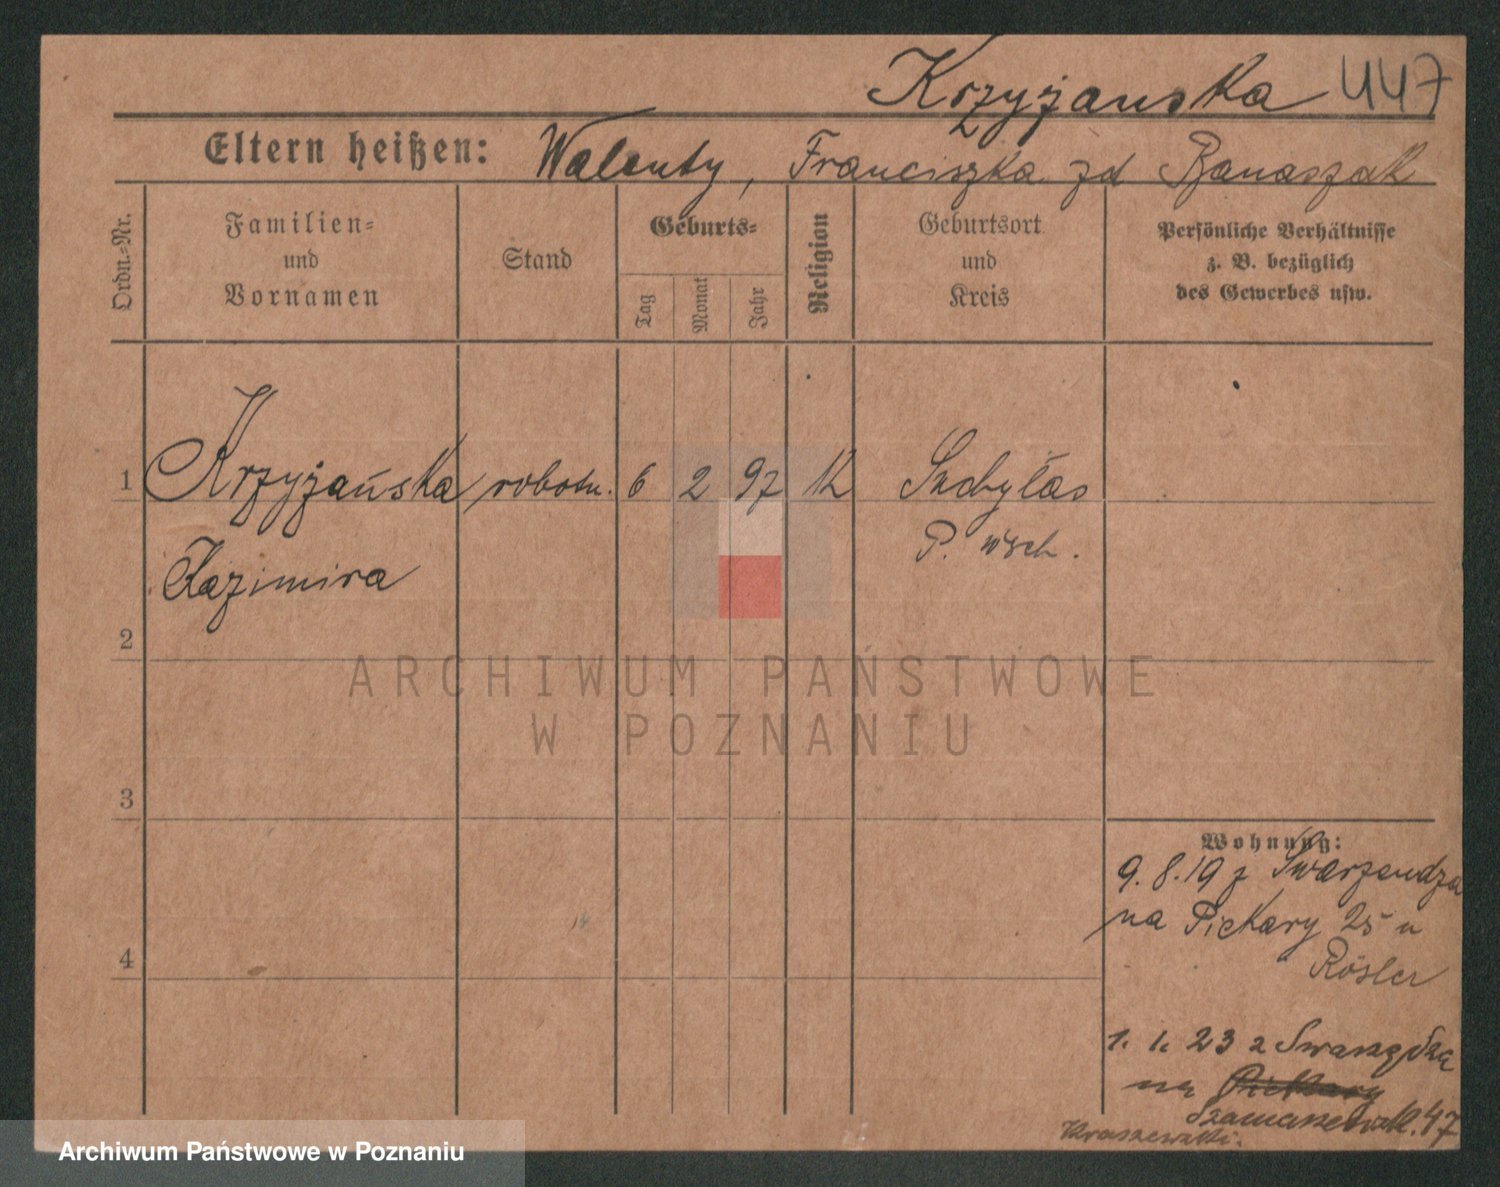 Krzyżanska 447
Eltern heißen: Walenty, Franciszka zd Banaszak
Ordn.-Nr.
Familien-
und
Vornamen
Stand
Geburts-
Tag
Monat
Jahr
Religion
Geburtsort
und
Kreis
Persönliche Verhältnisse
z. B. bezüglich
des Gewerbes usw.
1 Krzyżańska robotn. 6 2 97 K
P. wsch.
Kazimira
2
3
4
Wohnung:
9.8.19 z Swarzendza
na Piekary 25 u
Rösler
1. 1. 23 z
na Piekary
47
Kraszewski.
ARCHIWUM PAŃSTWOWE
W POZNANIU
Archiwum Państwowe w Poznaniu